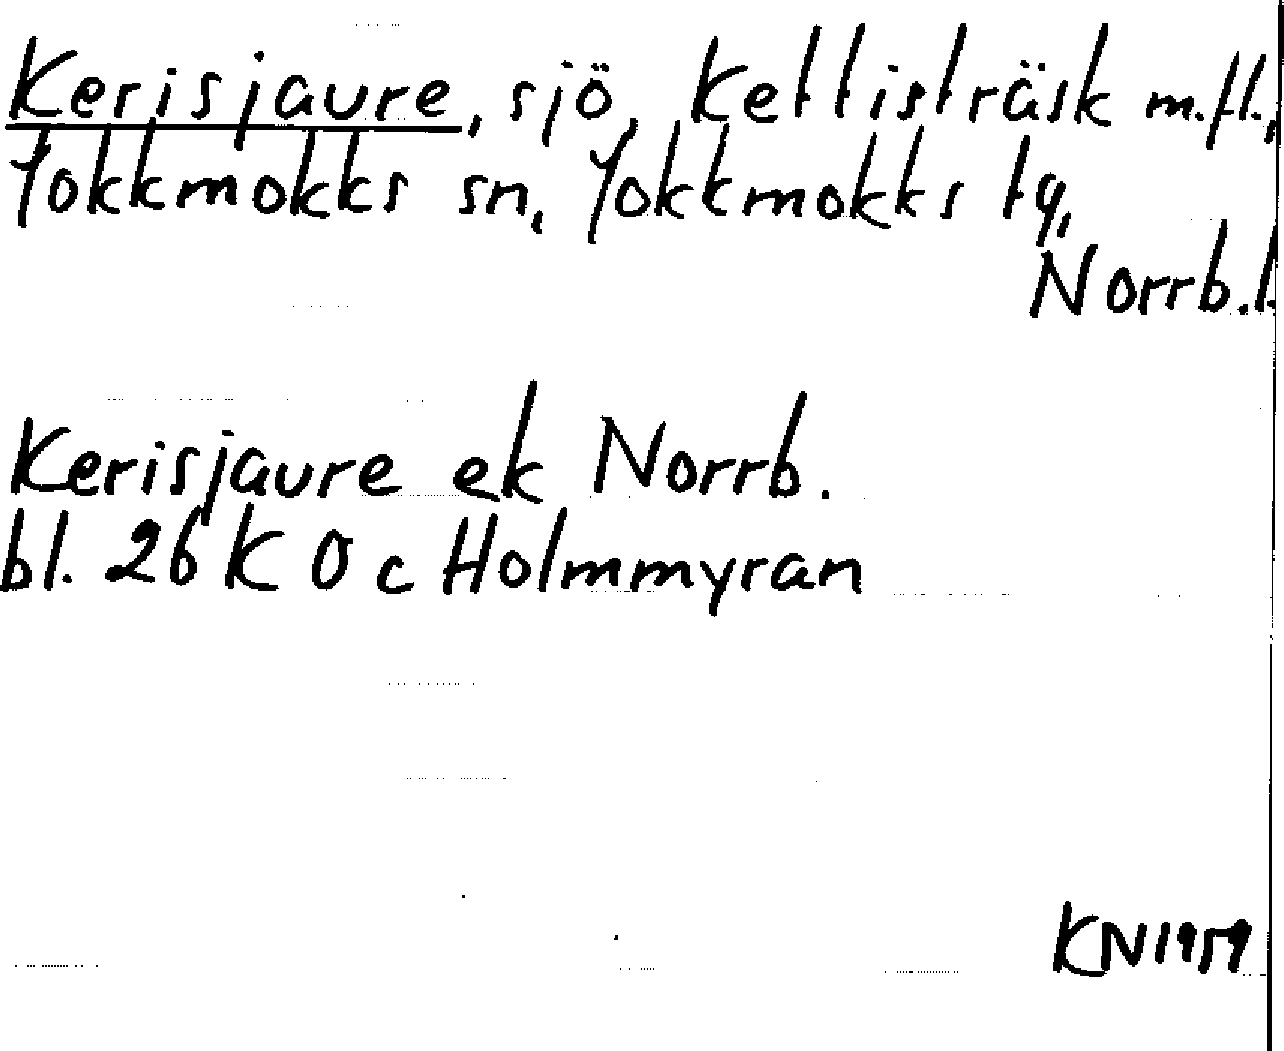 Kerisjaure, sjö, Kettisträsk m.fl.,
Jokkmokks sn, Jokkmokks tg,
Norrb.l.
Kerisjaure ek Norrb.
bl. 26 K 0 c Holmmyran
KN 1959